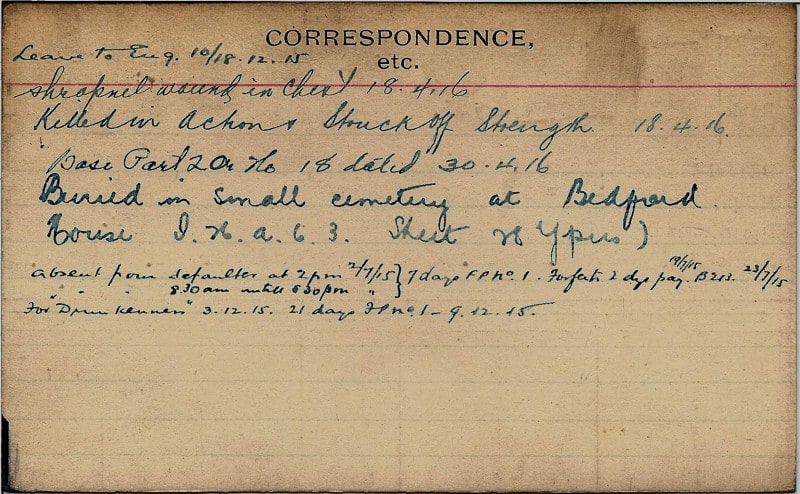 CORRESPONDENCE,
etc.
Leave to Eng. 10/18.12.15
Shrapnel wound in Chest 18.4.16
Killed in Action & Struck off Strength 18.4.16.
Base Part 2 Or No 18 dated 30.4.16
Buried in small cemetery at Bedford.
House I. 26. a. 6. 3. Sheet 28 Ypres)
absent from defaulter at 2 pm 2/7/15 } 7 days F P No. 1. Forfeits 2 dys pay. 19/7/15 B213. 23/7/15
" " 8.30am until 6.30pm "
For "Drunkenness" 3.12.15. 21 days FP No 1 - 9.12.15.